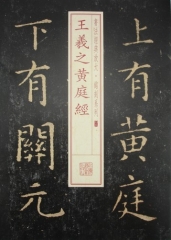 上有黃庭
下有關元
王羲之黃庭經